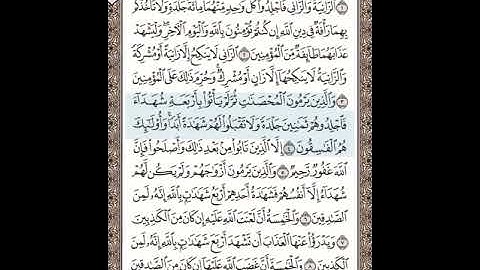 ٱلزَّانِيَةُ وَٱلزَّانِى فَٱجْلِدُوا۟ كُلَّ وَٰحِدٍ مِّنْهُمَا مِا۟ئَةَ جَلْدَةٍ وَلَا تَأْخُذْكُم
بِهِمَا رَأْفَةٌ فِى دِينِ ٱللَّهِ إِن كُنتُمْ تُؤْمِنُونَ بِٱللَّهِ وَٱلْيَوْمِ ٱلْءَاخِرِ وَلْيَشْهَدْ
عَذَابَهُمَا طَآئِفَةٌ مِّنَ ٱلْمُؤْمِنِينَ ٢ ٱلزَّانِى لَا يَنكِحُ إِلَّا زَانِيَةً أَوْ مُشْرِكَةً
وَٱلزَّانِيَةُ لَا يَنكِحُهَآ إِلَّا زَانٍ أَوْ مُشْرِكٌ وَحُرِّمَ ذَٰلِكَ عَلَى ٱلْمُؤْمِنِينَ
٣ وَٱلَّذِينَ يَرْمُونَ ٱلْمُحْصَنَٰتِ ثُمَّ لَمْ يَأْتُوا۟ بِأَرْبَعَةِ شُهَدَآءَ
فَٱجْلِدُوهُمْ ثَمَٰنِينَ جَلْدَةً وَلَا تَقْبَلُوا۟ لَهُمْ شَهَٰدَةً أَبَدًا وَأُو۟لَٰٓئِكَ
هُمُ ٱلْفَٰسِقُونَ ٤ إِلَّا ٱلَّذِينَ تَابُوا۟ مِنۢ بَعْدِ ذَٰلِكَ وَأَصْلَحُوا۟ فَإِنَّ
ٱللَّهَ غَفُورٌ رَّحِيمٌ ٥ وَٱلَّذِينَ يَرْمُونَ أَزْوَٰجَهُمْ وَلَمْ يَكُن لَّهُمْ
شُهَدَآءُ إِلَّآ أَنفُسُهُمْ فَشَهَٰدَةُ أَحَدِهِمْ أَرْبَعُ شَهَٰدَٰتٍۭ بِٱللَّهِ إِنَّهُۥ لَمِنَ
ٱلصَّٰدِقِينَ ٦ وَٱلْخَٰمِسَةُ أَنَّ لَعْنَتَ ٱللَّهِ عَلَيْهِ إِن كَانَ مِنَ ٱلْكَٰذِبِينَ
٧ وَيَدْرَؤُا۟ عَنْهَا ٱلْعَذَابَ أَن تَشْهَدَ أَرْبَعَ شَهَٰدَٰتٍۭ بِٱللَّهِ إِنَّهُۥ لَمِنَ
ٱلْكَٰذِبِينَ ٨ وَٱلْخَٰمِسَةَ أَنَّ غَضَبَ ٱللَّهِ عَلَيْهَآ إِن كَانَ مِنَ ٱلصَّٰدِقِينَ